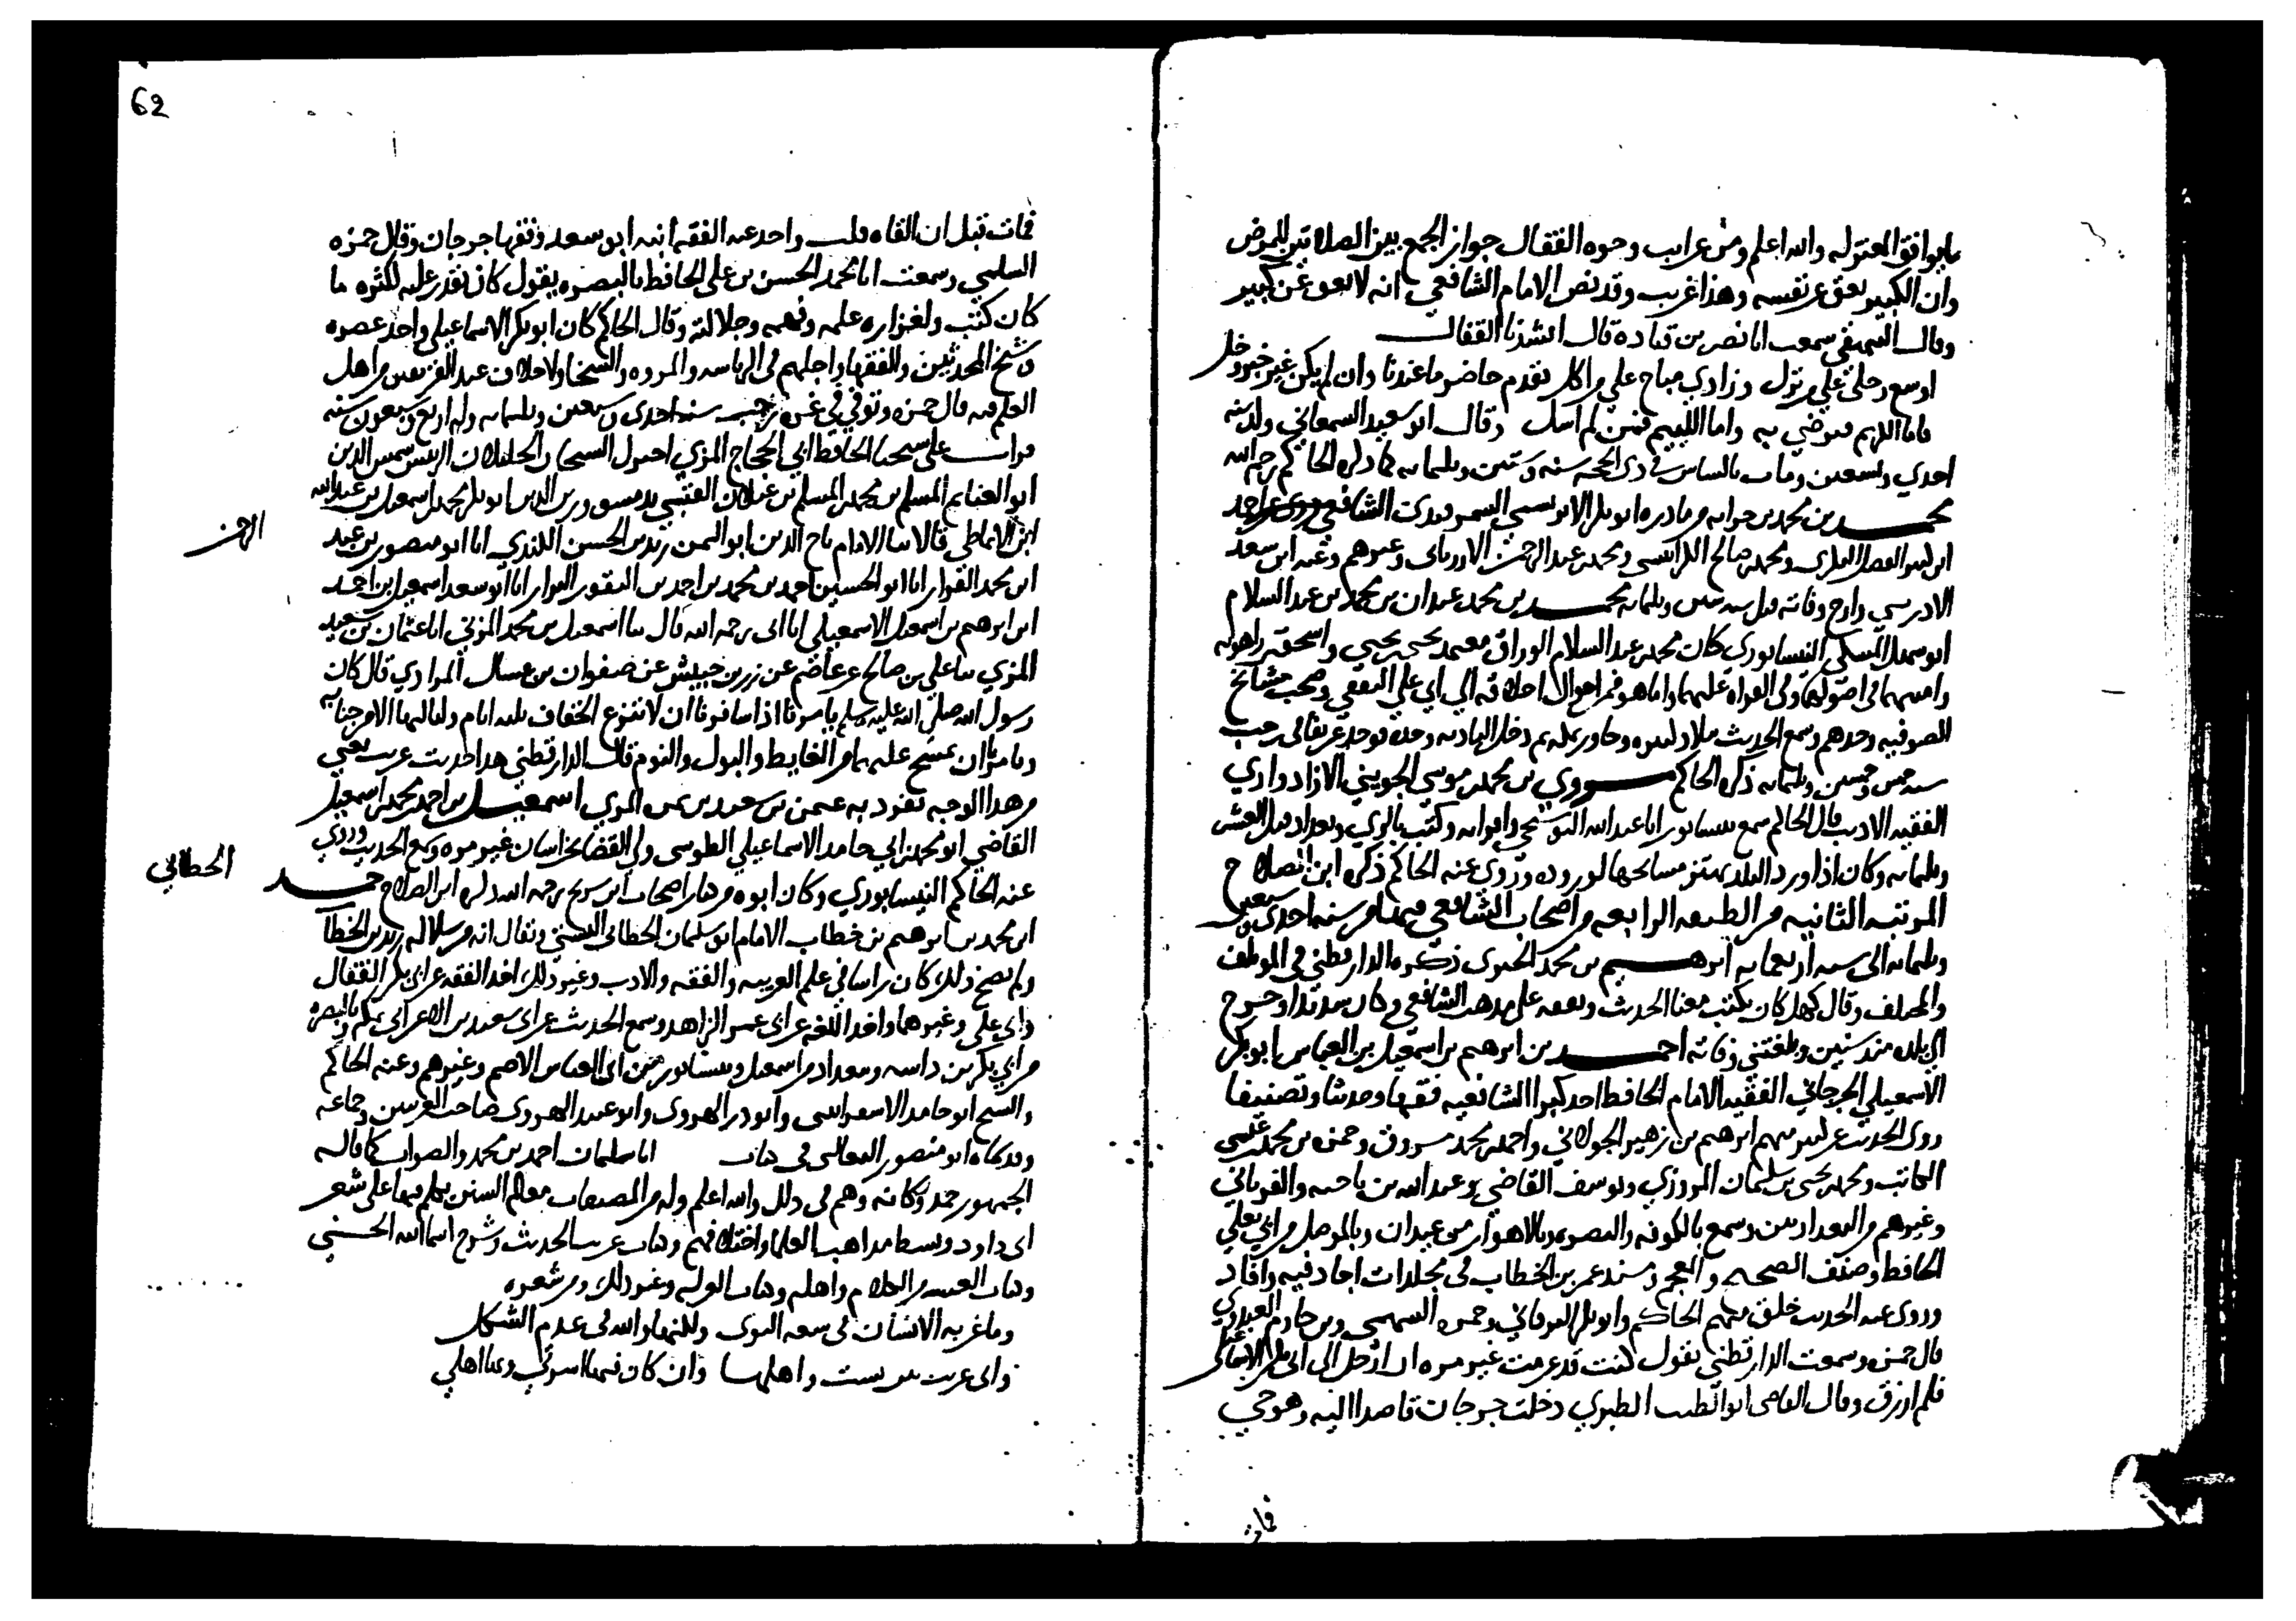 ما يوافق المعتزله والله اعلم ومن غرايب وجوه القفال جواز الجمع بين الصلاتين للمرض
وان الكبير يعق عن نفسه وهذا غريب وقد نص الامام الشافعي انه لا يعق عن كبير
وقال البيهقي سمعت ابا نصر بن قتادة قال انشدنا القفال
اوسع رحلي علي من نزل وزادي مباح علي من اكل نقدم حاضر ما عندنا وان لم يكن غير خبز وخل
فاما الكريم فيرضي به واما اللييم فمن لم ابل وقال ابو سعيد السمعاني ولد سنه
احدي وتسعين ومات بالشاس في ذي الحجه سنه وستين وثلثمايه كما ذكره الحاكم رحمه الله
محمد بن محمد بن ابو بكر السمرقندي الشافعي روى عن احمد
ومحمد بن صالح الكرابيسي ومحمد بن عبد الرحمن وغيرهم وعنه ابو سعد
الادريسي وارخ وفاته قبل سنه ستين وثلثمايه محمد بن محمد بن عبدان بن محمد بن عبد السلام
ابو سهل النيسابوري كان محمد بن عبد السلام الوراق معتمد يحيى بن يحيى واسحق بن راهويه
وامينهما في اصولهما وفي القراه عليهما واما هو فمن اخص الى ابي علي الثقفي وصحب مشايخ
الصوفيه وخدمهم وسمع الحديث ببلاد كثيره وجاور بمكه ثم دخل الباديه وحده فوجد غريقا في رجب
سنه خمس وخمسين وثلثمايه ذكره الحاكم بن محمد بن موسى الجويني الازادواري
الفقيه الاديب قال الحاكم سمع بنيسابور ابا عبد الله البوشنجي واقرانه وكتب بالري وبغداد قبل العشر
وثلثمايه وكان اذا ورد البلد يهتز مشايخنا لوروده وروى عنه الحاكم ذكره ابن الصلاح
المرتبه الثانيه من الطبقه الرابعه من اصحاب الشافعي فيها من سنه احدى وسبعين
وثلثمايه الى سنه اربعمايه ابرهيم بن محمد ذكره الدارقطني في المؤتلف
والمختلف وقال كهل كان يكتب معنا الحديث وتفقه على مذهب الشافعي وكان وخرج
الى بلده منذ سنين وبلغتني وفاته احمد بن ابرهيم بن اسمعيل بن العباس ابو بكر
الاسمعيلي الجرجاني الفقيه الامام الحافظ احد كبرا الشافعيه فقها وحديثا وتصنيفا
روى الحديث عن كثير منهم ابرهيم بن زهير الحلواني واحمد بن محمد بن مسروق وحمزه بن محمد بن عيسى
الكاتب ومحمد بن يحيى بن سليمان المروزي ويوسف القاضي وعبد الله بن ناجيه والفريابي
وغيرهم من البغداديين وسمع بالكوفه والبصره وبالاهواز من عبدان وبالموصل من ابي يعلي
الحافظ وصنف الصحيح والمعجم ومسند عمر بن الخطاب في مجلدات اجاد فيه وافاد
وروى عنه الحديث خلق منهم الحاكم وابو بكر البرقاني وحمزه السهمي وابو حازم العبدوي
قال حمزه وسمعت الدارقطني يقول كنت قد عزمت غير مره ان ارحل الى ابي بكر الاسماعيلي
فلم ارزق وقال القاضي ابو الطيب الطبري دخلت جرجان قاصدا اليه وهو حي
فمات
62
فمات قبل ان القاه قلت واخذ عنه الفقه ابنه ابو سعد وفقها جرجان وقال حمزه
السهمي وسمعت ابا محمد الحسن بن علي الحافظ بالبصره يقول كان لكثره ما
كان كتب ولغزاره علمه وفهمه وجلالته وقال الحاكم كان ابو بكر الاسماعيلي واحد عصره
وشيخ المحدثين والفقها واجلهم في الرياسه والمروه والسخا ولا خلاف عند الفريقين من اهل
العلم فيه قال حمزه وتوفي في غره رجب سنه احدى وسبعين وثلثمايه وله اربع وسبعون سنه
قرات على شيخنا الحافظ ابي الحجاج المزي اخبرك الشيخان الجليلان الرييس شمس الدين
ابو الغنايم المسلم بن محمد بن المسلم بن علان القيسي بدمشق وزين الدين ابو بكر محمد بن اسمعيل بن عبد الله
ابن الانماطي قالا انا الامام تاج الدين ابو اليمن زيد بن الحسن الكندي انا ابو منصور بن عبد
الرحمن
ابن محمد القزاز انا ابو الحسين احمد بن محمد بن احمد بن النقور البزاز انا ابو سعد اسمعيل بن احمد
ابن ابرهيم بن اسمعيل الاسمعيلي انا ابي رحمه الله قال ثنا اسمعيل بن محمد المزني انا عثمان بن سعيد
المزي ثنا علي بن صالح عن عاصم عن زر بن حبيش عن صفوان بن عسال المرادي قال كان
رسول الله صلى الله عليه وسلم يامرنا اذا سافرنا ان لا ننزع الخفاف ثلثه ايام ولياليها الا من جنابه
ويامرنا ان نمسح عليهما من الغايط والبول والنوم قال الدارقطني هذا حديث غريب يعني
من هذا الوجه تفرد به عثمن بن سعيد المزي اسمعيل بن احمد بن محمد بن اسمعيل
القاضي ابو محمد بن ابي حامد الاسماعيلي الطوسي ولي القضا بخراسان غير مره وسمع الحديث وروي
عنه الحاكم النيسابوري وكان ابوه من كبار اصحاب ابن سريج رحمه الله ذكره ابن الصلاح حمد
الخطابي
ابن محمد بن ابرهيم بن خطاب الامام ابو سليمان الخطابي البستي ويقال انه من سلاله زيد بن الخطاب
ولم يصح ذلك كان راسا في علم العربيه والفقه والادب وغير ذلك اخذ الفقه عن ابي بكر القفال
وابي علي وغيرهما واخذ اللغه عن ابي عمر الزاهد وسمع الحديث عن ابي سعيد بن الاعرابي بمكه وبالبصره
من ابي بكر بن داسه وببغداد من اسمعيل وبنيسابور من ابي العباس الاصم وغيرهم وعنه الحاكم
والشيخ ابو حامد الاسفراييني وابو ذر الهروي وابو عبيد الهروي صاحب الغريبين وجماعه
وقد سماه ابو منصور الثعالبي في كتاب ابا سليمان احمد بن محمد والصواب كما قاله
الجمهور حمد وكانه وهم في ذلك والله اعلم وله من المصنفات معالم السنن تكلم فيها على شعر
ابي داود وبسط مذاهب العلما واختلافهم وكتاب غريب الحديث وشرح اسما الله الحسني
وكتاب الغنيه عن الكلام واهله وكتاب العزله وغير ذلك ومن شعره
وما غربه الانسان في سعه النوى ولكنها والله في عدم الشكل
واني غريب بين بست واهلها وان كان فيها اسرتي وبها اهلي